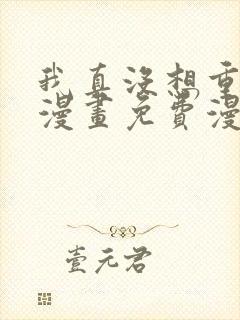 我真没想重
漫畫免費漫
壹元君